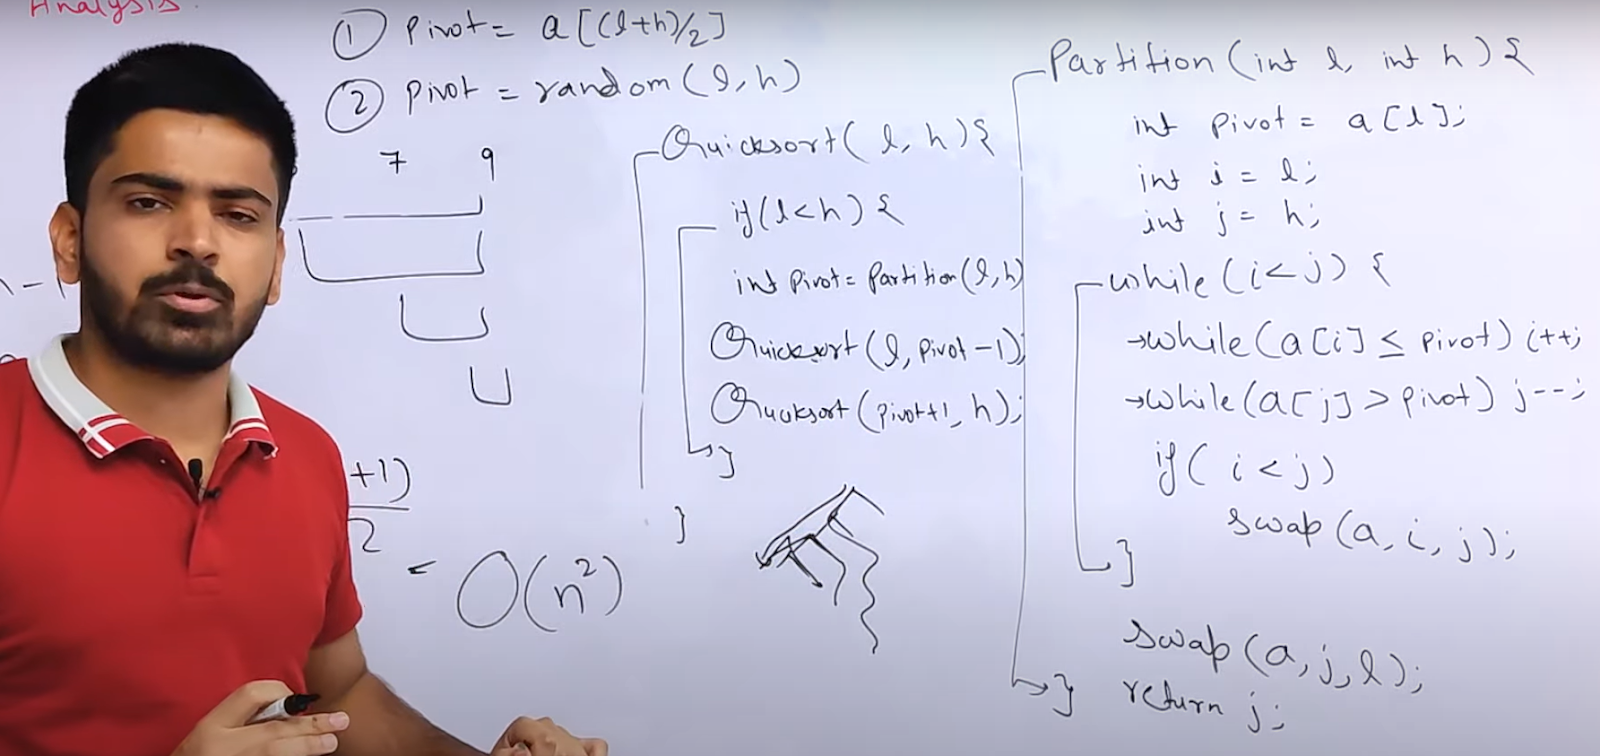 Analysis
① Pivot = a[(l+h)/2]
② Pivot = random(l, h)
7 9
n-1
+1)
2
= O(n²)
Quicksort(l, h){
if(l<h) {
int pivot = Partition(l, h)
Quicksort(l, pivot-1);
Quicksort(pivot+1, h);
}
}
Partition(int l, int h){
int pivot = a[l];
int i = l;
int j = h;
while(i<j) {
→while(a[i] ≤ pivot) i++;
→while(a[j] > pivot) j--;
if(i<j)
swap(a, i, j);
}
swap(a, j, l);
return j;
}